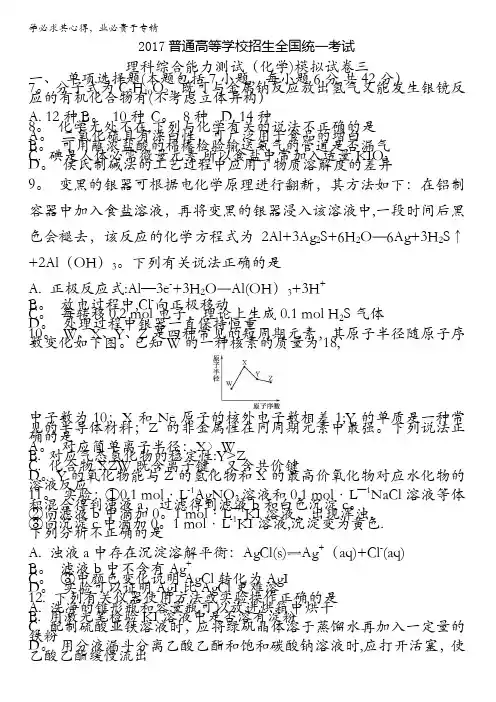 学必求其心得，业必贵于专精
2017普通高等学校招生全国统一考试
理科综合能力测试（化学)模拟试卷三
一、 单项选择题(本题包括7小题，每小题6分,共42分）
7。 分子式为C5H10O3,既可与金属钠反应放出氢气又能发生银镜反
应的有机化合物有(不考虑立体异构）
A. 12种 B。 10种 C。 8种 D. 14种
8。 化学无处不在,下列与化学有关的说法不正确的是
A。 二氧化硫具有漂白性,可广泛用于食品的增白
B。 可用蘸浓盐酸的棉棒检验输送氨气的管道是否漏气
C. 碘是人体必需微量元素,所以食盐中常加入适量KIO3
D。 侯氏制碱法的工艺过程中应用了物质溶解度的差异
9。 变黑的银器可根据电化学原理进行翻新，其方法如下：在铝制
容器中加入食盐溶液，再将变黑的银器浸入该溶液中,一段时间后黑
色会褪去，该反应的化学方程式为 2Al+3Ag2S+6H2O—6Ag+3H2S↑
+2Al（OH）3。下列有关说法正确的是
A. 正极反应式:Al—3e-+3H2O—Al(OH）3+3H+
B。 放电过程中,Cl-向正极移动
C。 每转移0.2 mol电子，理论上生成0.1 mol H2S气体
D。 处理过程中银器一直保持恒重
10。 W、X、Y、Z是四种常见的短周期元素，其原子半径随原子序
数变化如下图。已知W的一种核素的质量为18,
原子半径
W
X
Y
Z
原子序数
中子数为10；X和Ne原子的核外电子数相差1;Y的单质是一种常
见的半导体材料；Z的非金属性在同周期元素中最强。下列说法正
确的是
A。 对应简单离子半径：X〉W
B. 对应气态氢化物的稳定性:Y>Z
C. 化合物XZW既含离子键，又含共价键
D。 Y的氧化物能与Z的氢化物和X的最高价氧化物对应水化物的
溶液反应
11。 实验：①0.1 mol·L-1AgNO3溶液和0.1 mol·L-1NaCl溶液等体
积混合得到浊液a，过滤得到滤液b和白色沉淀c。
②向滤液b中滴加0。1 mol·L-1KI溶液，出现浑浊。
③向沉淀c中滴加0。1 mol·L-1KI溶液,沉淀变为黄色.
下列分析不正确的是
A. 浊液a中存在沉淀溶解平衡：AgCl(s)⇌Ag+（aq)+Cl-(aq)
B。 滤液b中不含有Ag+
C。 ③中颜色变化说明AgCl转化为AgI
D。 实验可以证明AgI比AgCl更难溶
12. 下列有关仪器使用方法或实验操作正确的是
A. 洗净的锥形瓶和容量瓶可以放进烘箱中烘干
B. 用激光笔检验KI溶液中是否溶有淀粉
C. 配制硫酸亚铁溶液时，应将绿矾晶体溶于蒸馏水再加入一定量的
铁粉
D。 用分液漏斗分离乙酸乙酯和饱和碳酸钠溶液时,应打开活塞，使
乙酸乙酯缓慢流出